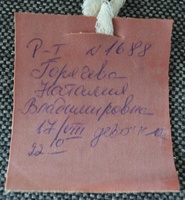 Р-Т N 1688
Горячева
Наталия
Владимировна
17/VIII девочка
22 0